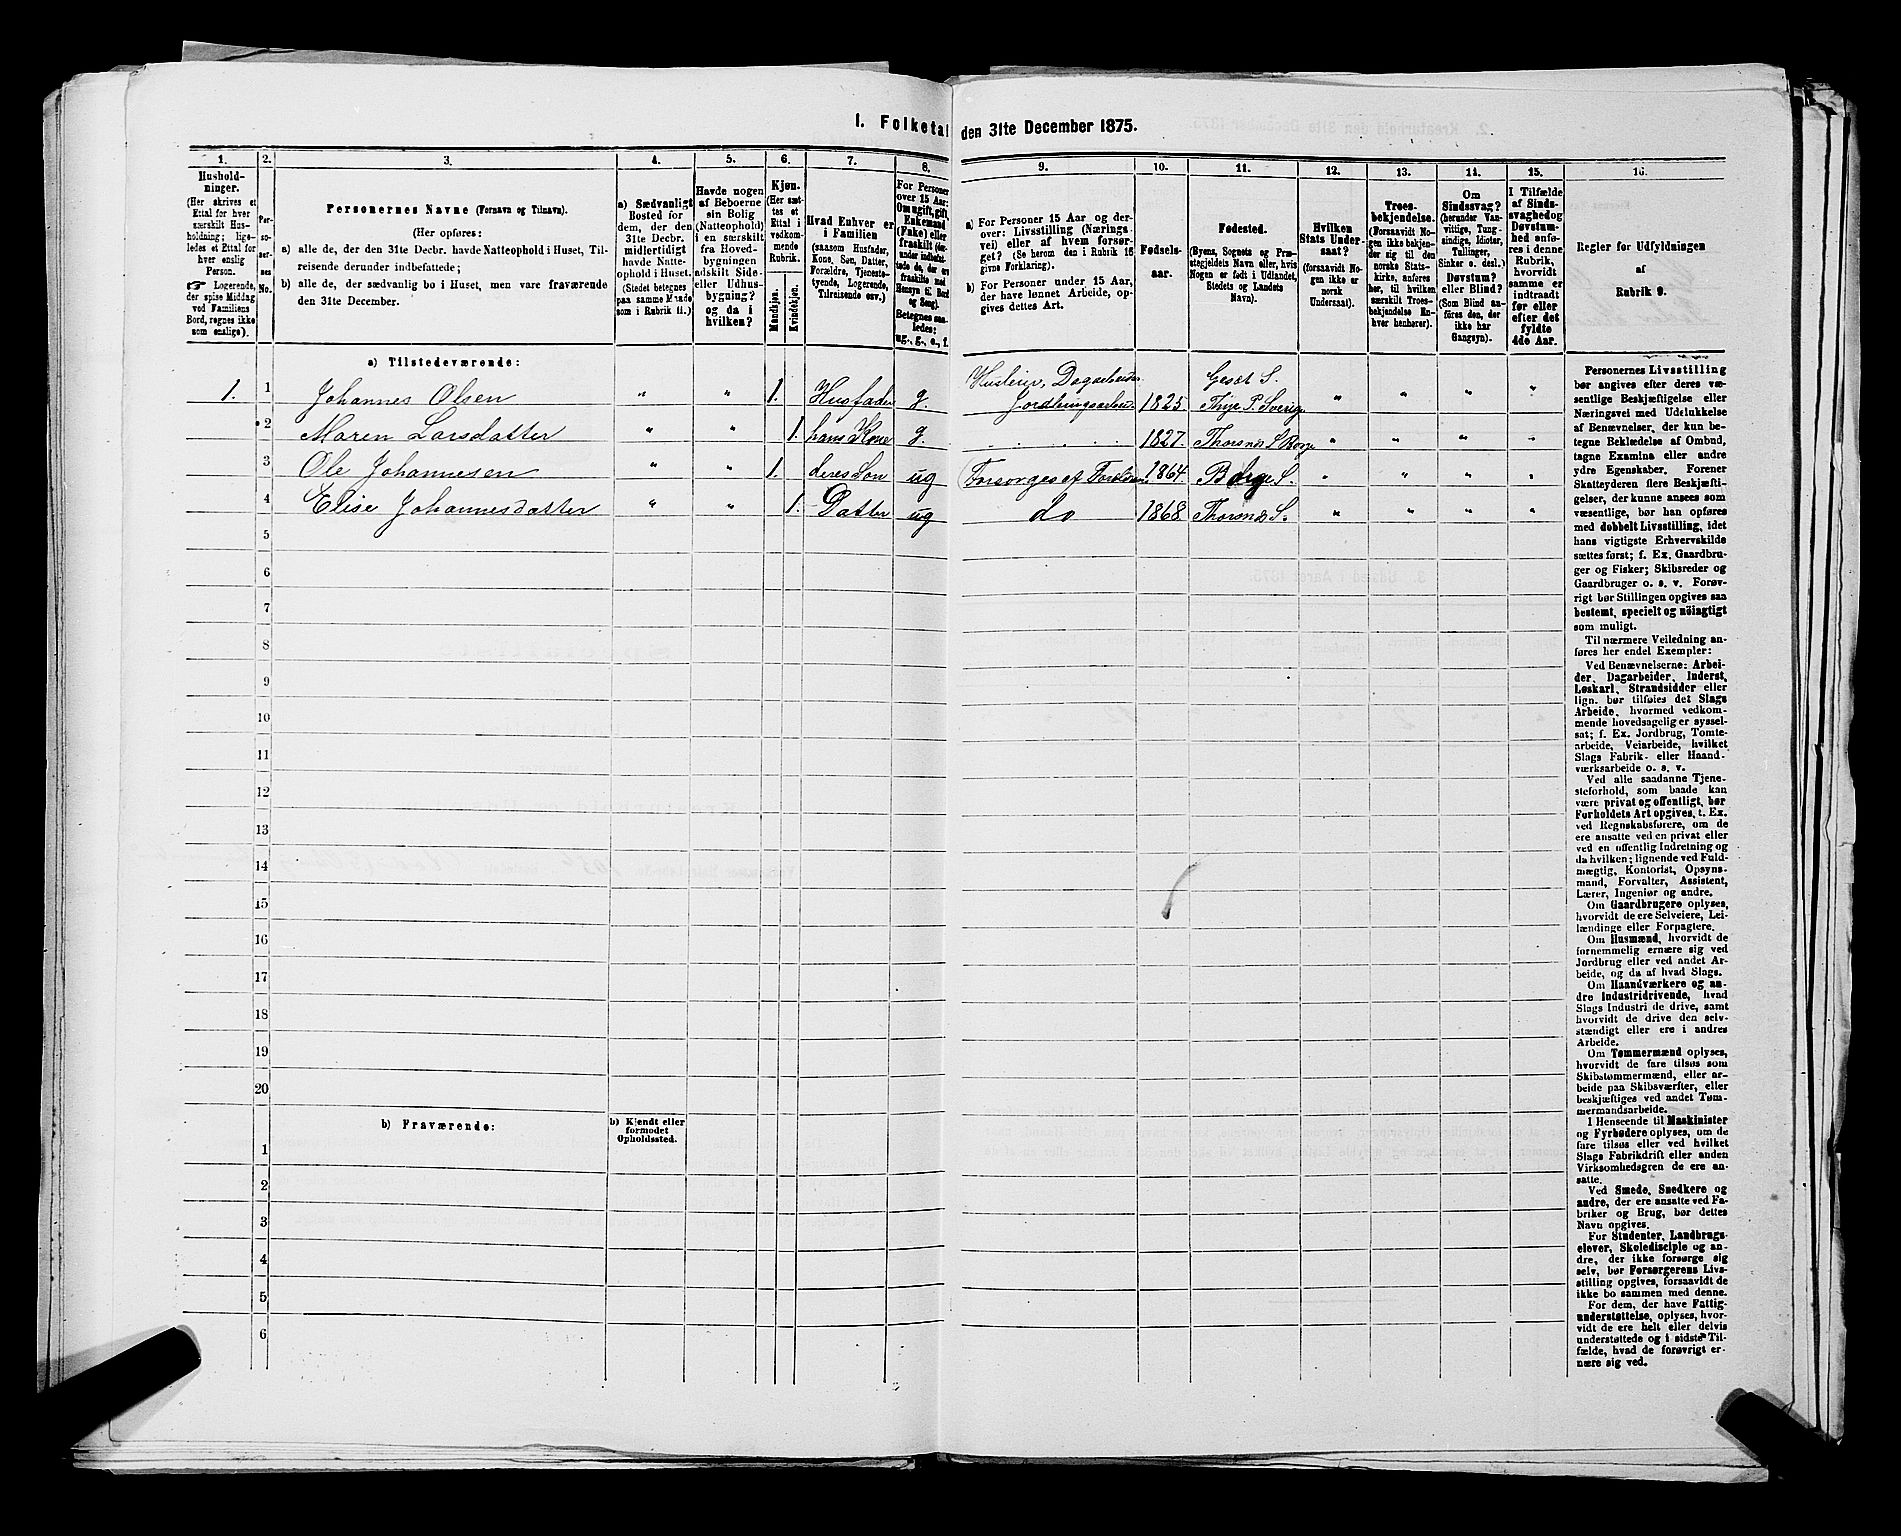 I. Folketal den 31te December 1875.
1. 2. 3. 4. 5. 6. 7. 8. 9. 10. 11. 12. 13. 14. 15. 16.
Hushold-
ninger.
(Her skrives et
Ettal for hver
særskilt Hus-
holdning; lige-
ledes et Ettal for
hver enslig
Person.
☞ Logerende,
der spise Middag
ved Familiens
Bord, regnes ikke
som enslige).
Per-
so-
ner-
nes
No.
Personernes Navne (Fornavn og Tilnavn).
(Her opføres:
a) alle de, der den 31te Decbr. havde Natteophold i Huset, Til-
reisende derunder indbefattede;
b) alle de, der sædvanlig bo i Huset, men vare fraværende
den 31te December.
a) Sædvanligt
Bosted for
dem, der den
31te Decbr.
midlertidigt
havde Natte-
ophold i Huset.
(Stedet betegnes
paa samme Maade
som i Rubrik 11.)
Havde nogen
af Beboerne
sin Bolig
(Natteophold)
i en særskilt
fra Hoved-
bygningen
adskilt Side-
eller Udhus-
bygning?
og da i
hvilken?
Kjøn.
(Her sæt-
tes et
Ettal i
vedkom-
mende
Rubrik.
Mandkjøn.
Kvindekjøn.
Hvad Enhver er
i Familien
(saasom Husfader,
Kone, Søn, Datter,
Forældre, Tjeneste-
tyende, Logerende,
Tilreisende osv.)
For Personer
over 15 Aar:
Om ugift, gift,
Enkemand
(Enke) eller
fraskilt (der-
under indbefat-
tede de, der ere
fraskilte med
Hensyn til Bord
og Seng).
Betegnes saa-
ledes:
ug., g., e., f.
a) For Personer 15 Aar og der-
over: Livsstilling (Nærings-
vei) eller af hvem forsør-
get? (Se herom den i Rubrik 16
givne Forklaring).
b) For Personer under 15 Aar,
der have lønnet Arbeide, op-
gives dettes Art.
Fødsels-
aar.
Fødested.
(Byens, Sognets og Præ-
stegjeldets Navn eller, hvis
Nogen er født i Udlandet,
Stedets og Landets
Navn).
Hvilken
Stats Under-
saat?
(forsaavidt No-
gen ikke er
norsk
Undersaat).
Troes-
bekjendelse.
(Forsaavidt No-
gen ikke bekjen-
der sig til den
norske Stats-
kirke, anføres
her, til hvilken
særskilt Troes-
bekjendelse En-
hver henhører).
Om
Sindssvag?
(herunder Van-
vittige, Tung-
sindige, Idioter,
Tullinger,
Sinker o. desl.)
Døvstum?
eller Blind?
(Som Blind an-
føres den, der
ikke har
Gangsyn).
I Tilfælde
af Sinds-
svaghed og
Døvstum-
hed anfø-
res i denne
Rubrik,
hvorvidt
samme er
indtraadt
før eller
efter det
fyldte
4de Aar.
Regler for Udfyldningen
af
Rubrik 9.
a) Tilstedeværende:
1. 1 Johannes Olsen " " 1. Husfader g. Husleier, Dagarbeider 1825 Geset S.
Thye P. Sverig " " " "
2 Maren Larsdatter " " 1. hans Kone g. . . . 1827. Thorsnæs S Borge " " " "
3 Ole Johannesen " " 1. deres Søn ug Forsørges af 1864. Borge S. " " " "
4 Elise Johannesdatter " " 1. Datter ug do 1868 Thorsnæs S. " " " "
5
6
7
8
9
10
11
12
13
14
15
16
17
18
19
20
b) Fraværende:
b) Kjendt eller
formodet
Opholdssted.
1
2
3
4
5
6
Personernes Livsstilling
bør angives efter deres væ-
sentlige Beskjæftigelse eller
Næringsvei med Udelukkelse
af Benævnelser, der kun be-
tegne Beklædelse af Ombud,
tagne Examina eller andre
ydre Egenskaber. Forener
Skatteyderen flere Beskjæfti-
gelser, der kunne ansees som
væsentlige, bør han opføres
med dobbelt Livsstilling, idet
hans vigtigste Erhvervskilde
sættes først; f. Ex. Gaardbru-
ger og Fisker; Skibsreder og
Gaardbruger o. s. v. Forøv-
rigt bør Stillingen opgives saa
bestemt, specielt og nøiagtigt
som muligt.
Til nærmere Veiledning an-
føres her endel Exempler:
Ved Benævnelserne: Arbei-
der, Dagarbeider, Inderst,
Løskarl, Strandsidder eller
lign. bør tilføies det Slags
Arbeide, hvormed vedkom-
mende hovedsagelig er syssel-
sat; f. Ex. Jordbrug, Tomte-
arbeide, Veiarbeide, hvilket
Slags Fabrik- eller Haand-
værksarbeide o. s. v.
Ved alle saadanne Tjene-
steforhold, som baade kan
være privat og offentligt, bør
Forholdets Art opgives, t. Ex.
ved Regnskabsførere, om de
ere ansatte ved en privat eller
ved en offentlig Indretning og
da hvilken; lignende ved Fuld-
mægtig, Kontorist, Opsyns-
mand, Forvalter, Assistent,
Lærer, Ingeniør og andre.
Om Gaardbrugere oplyses,
hvorvidt de ere Selveiere, Lei-
lændinge eller Forpagtere.
Om Husmænd, hvorvidt de
fornemmelig ernære sig ved
Jordbrug eller ved andet Ar-
beide, og da af hvad Slags.
Om Haandværkere og an-
dre Industridrivende, hvad
Slags Industri de drive, samt
hvorvidt de drive den selv-
stændigt eller ere i andres
Arbeide.
Om Tømmermænd oplyses,
hvorvidt de fare tilsøs som
Skibstømmermænd, eller ar-
beide paa Skibsværfter, eller
beskjæftiges ved andet Tøm-
mermandsarbeide.
I Henseende til Maskinister
og Fyrbødere oplyses, om de
fare tilsøs eller ved hvilket
Slags Fabrikdrift eller anden
Virksomhedsgren de ere an-
satte.
Ved Smede, Snedkere og
andre, der ere ansatte ved Fa-
briker og Brug, bør dettes
Navn opgives.
For Studenter, Landbrugs-
elever, Skoledisciple og an-
dre, der ikke forsørge sig
selv, bør Forsørgerens Livs-
stilling opgives, forsaavidt de
ikke bo sammen med denne.
For dem, der have Fattig-
understøttelse, oplyses, hvor-
vidt de ere helt eller delvis
understøttede og i sidste Til-
fælde, hvad de forøvrigt er-
nære sig ved.